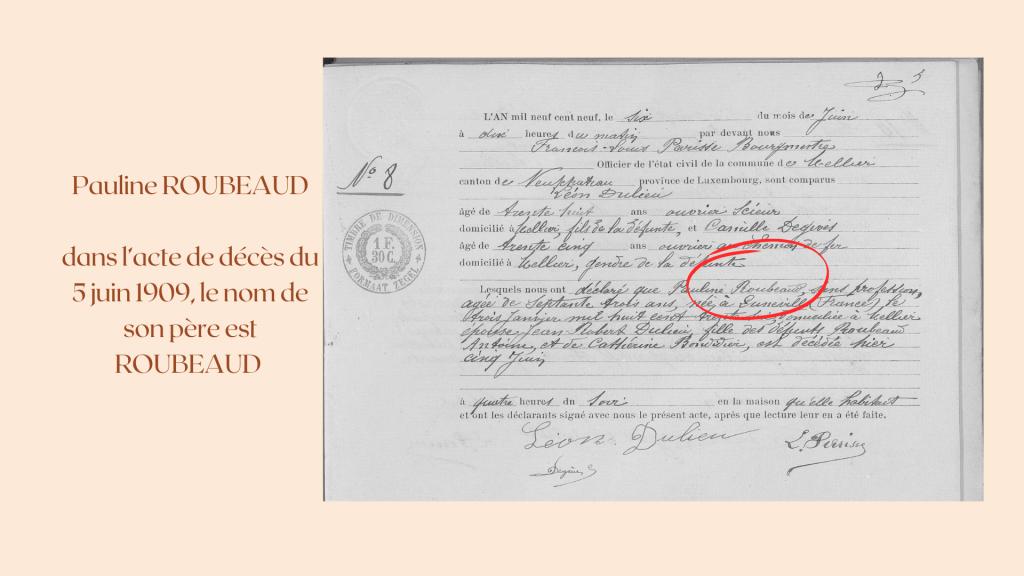 Pauline ROUBEAUD
dans l'acte de décès du
5 juin 1909, le nom de
son père est
ROUBEAUD
5
L'AN mil neuf cent neuf, le six du mois de Juin
à dix heures du matin par devant nous
François-Louis Parisse Bourgmestre
Officier de l'état civil de la commune de Mellier
No 8
canton de Neufchateau province de Luxembourg, sont comparus
Léon Dulieu
âgé de trente huit ans ouvrier scieur
domicilié à Mellier, fils de la défunte, et Camille Degives
âgé de trente cinq ans ouvrier au chemin de fer
domicilié à Mellier, gendre de la défunte
TIMBRE DE DIMENSION
1 F.
30 C.
FORMAAT ZEGEL
Lesquels nous ont déclaré que Pauline Roubeaud, sans profession,
agée de septante trois ans, née à Lunéville (France), le
trois Janvier mil huit cent trente six, domiciliée à Mellier
épouse Jean-Robert Dulieu, fille des défunts Roubeaud
Antoine, et de Cathérine, est décédée hier
cinq Juin
à quatre heures du soir en la maison qu'elle habitait
et ont les déclarants signé avec nous le présent acte, après que lecture leur en a été faite.
Léon Dulieu